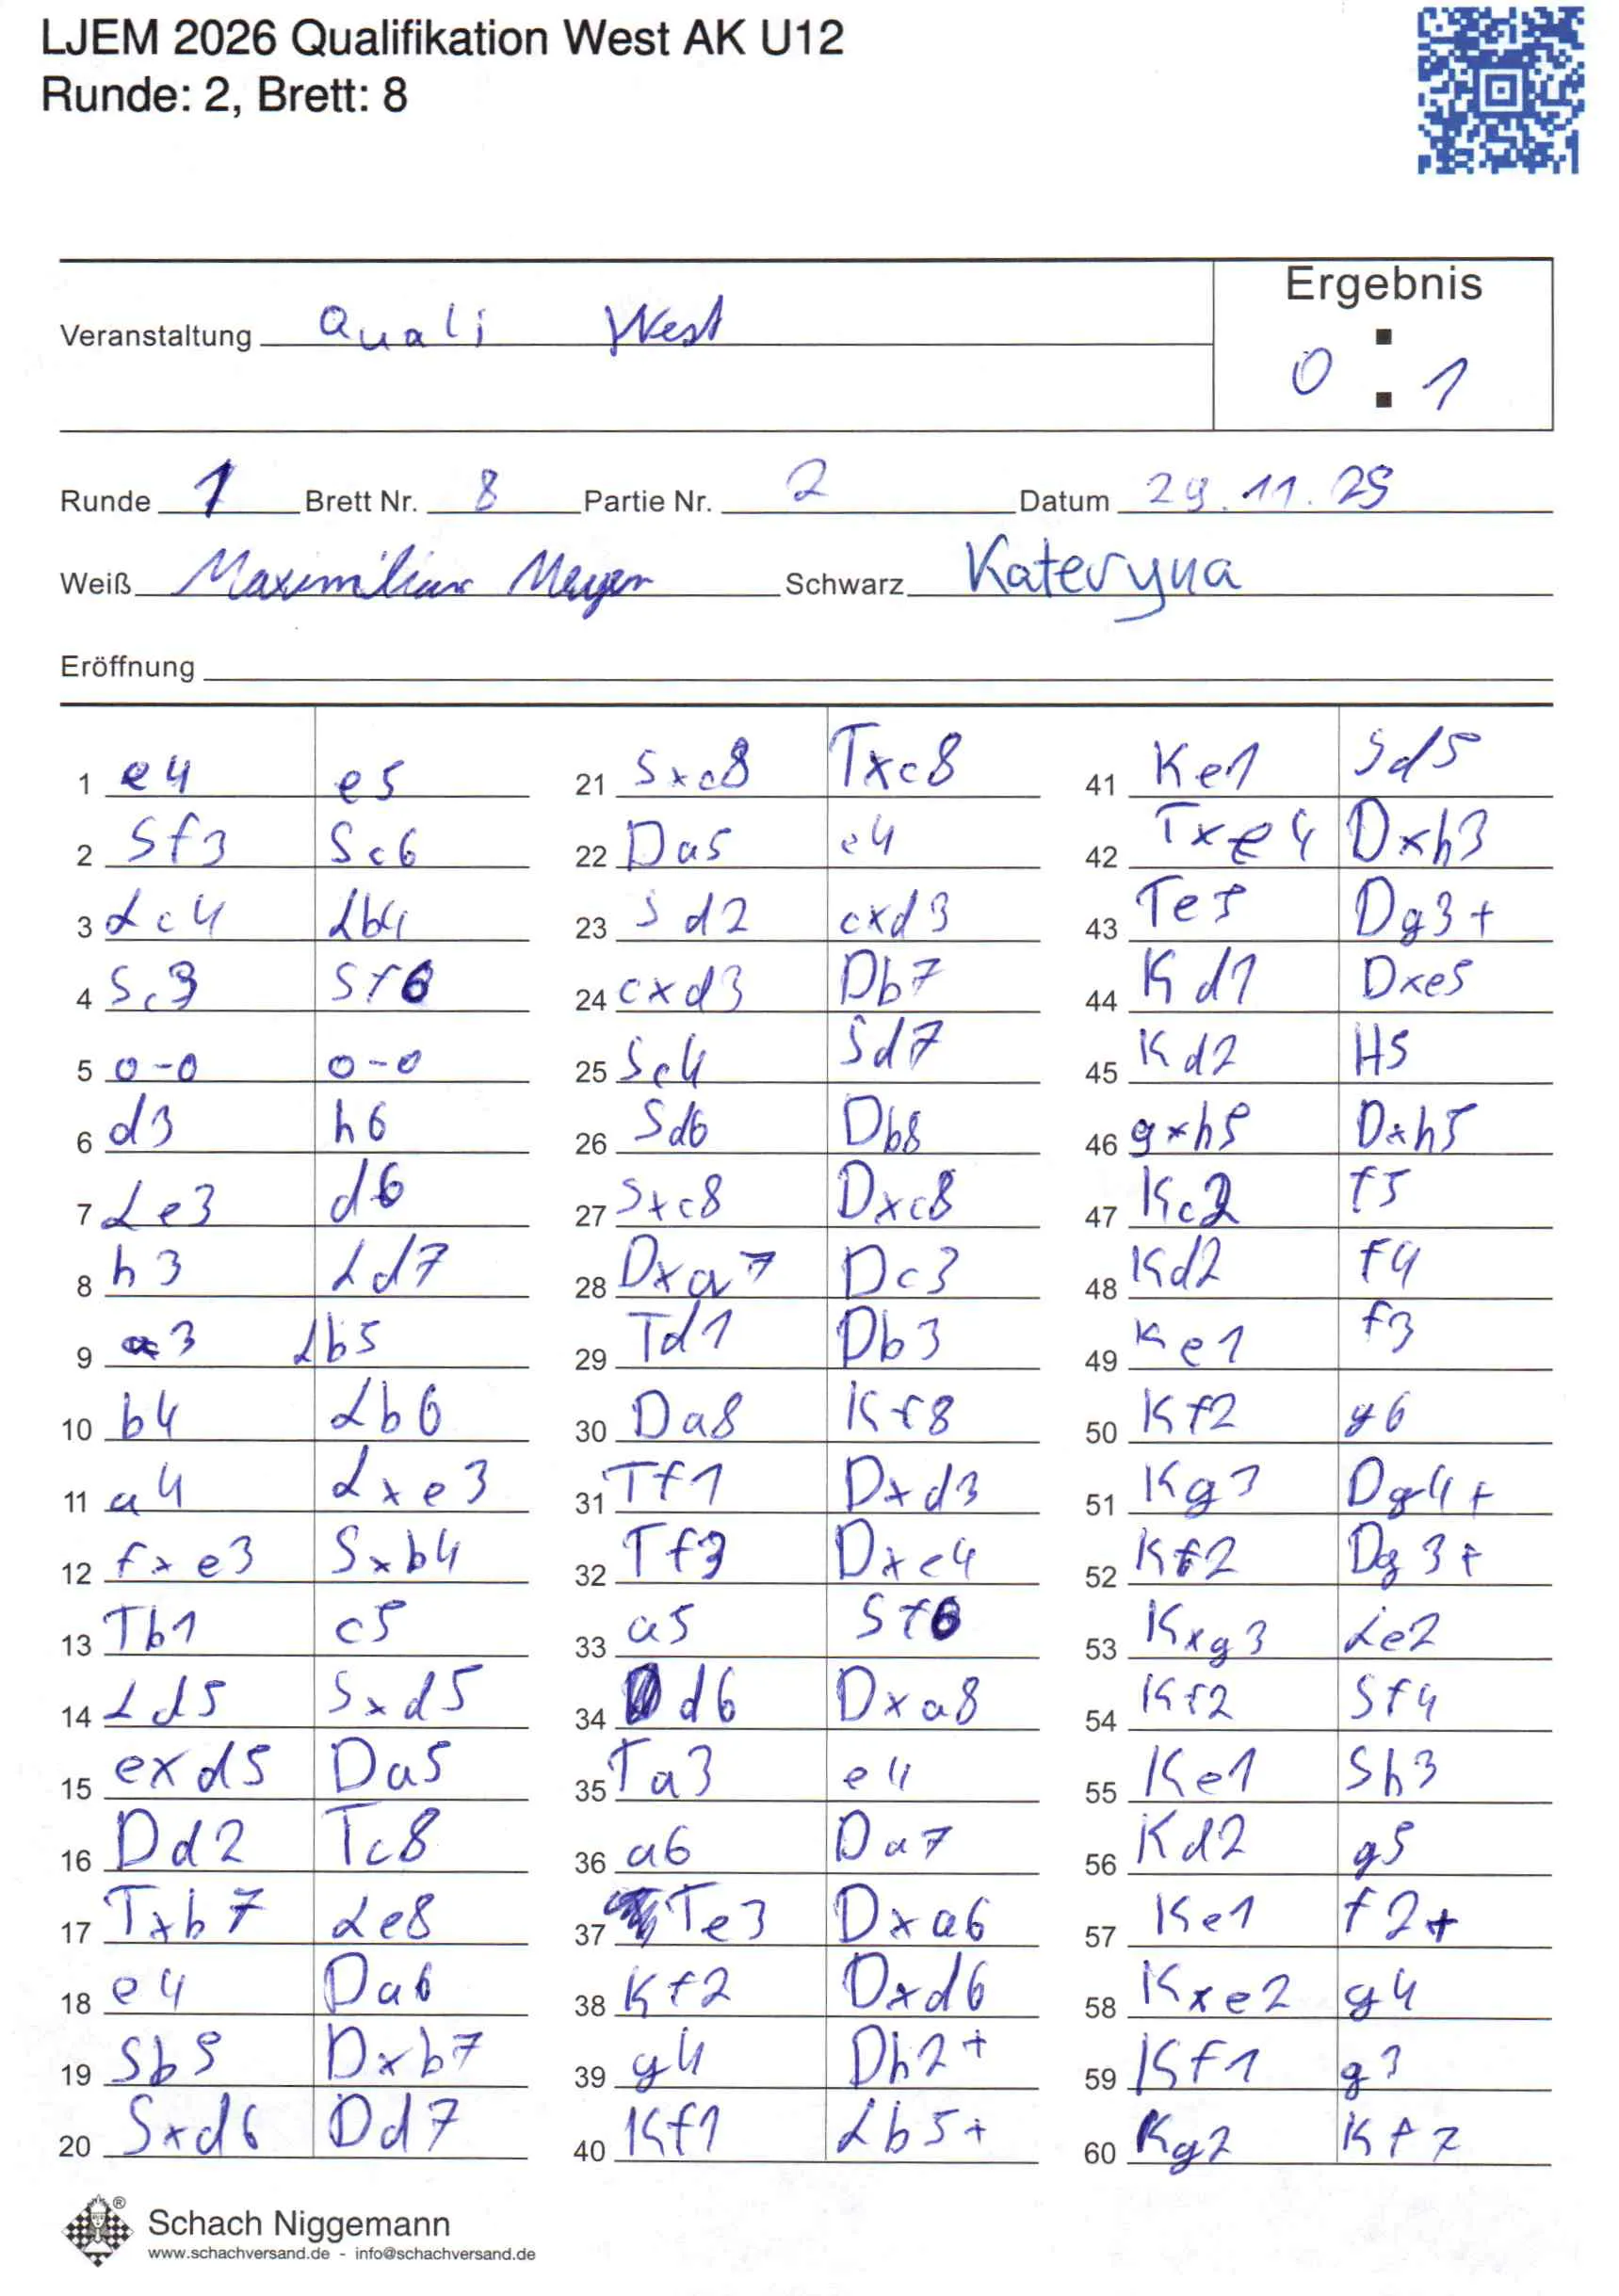 LJEM 2026 Qualifikation West AK U12
Runde: 2, Brett: 8
Ergebnis
Veranstaltung Quali West
0 : 1
Runde 1 Brett Nr. 8 Partie Nr. 2 Datum 29.11.25
Weiß Maximilian Meyer Schwarz Kateryna
Eröffnung
1 e4 e5
2 Sf3 Sc6
3 Lc4 Lb4
4 Sc3 Sf6
5 0-0 0-0
6 d3 h6
7 Le3 d6
8 h3 Ld7
9 a3 Lb5
10 b4 Lb6
11 a4 Lxe3
12 fxe3 Sxb4
13 Tb1 c5
14 Ld5 Sxd5
15 exd5 Da5
16 Dd2 Tc8
17 Txb7 Le8
18 e4 Da6
19 Sb5 Dxb7
20 Sxd6 Dd7
21 Sxc8 Txc8
22 Da5 e4
23 Sd2 cxd3
24 cxd3 Db7
25 Sc4 Sd7
26 Sd6 Db8
27 Sxc8 Dxc8
28 Dxa7 Dc3
29 Td1 Db3
30 Da8 Kf8
31 Tf1 Dxd3
32 Tf3 Dxe4
33 a5 Sf6
34 Dd6 Dxa8
35 Ta3 e4
36 a6 Da7
37 Te3 Dxa6
38 Kf2 Dxd6
39 g4 Dh2+
40 Kf1 Lb5+
41 Ke1 Sd5
42 Txe4 Dxh3
43 Te5 Dg3+
44 Kd1 Dxe5
45 Kd2 H5
46 gxh5 Dxh5
47 Kc2 f5
48 Kd2 f4
49 Ke1 f3
50 Kf2 g6
51 Kg3 Dg4+
52 Kf2 Dg3+
53 Kxg3 Le2
54 Kf2 Sf4
55 Ke1 Sh3
56 Kd2 g5
57 Ke1 f2+
58 Kxe2 g4
59 Kf1 g3
60 Kg2 Kf7
Schach Niggemann ®
www.schachversand.de - info@schachversand.de